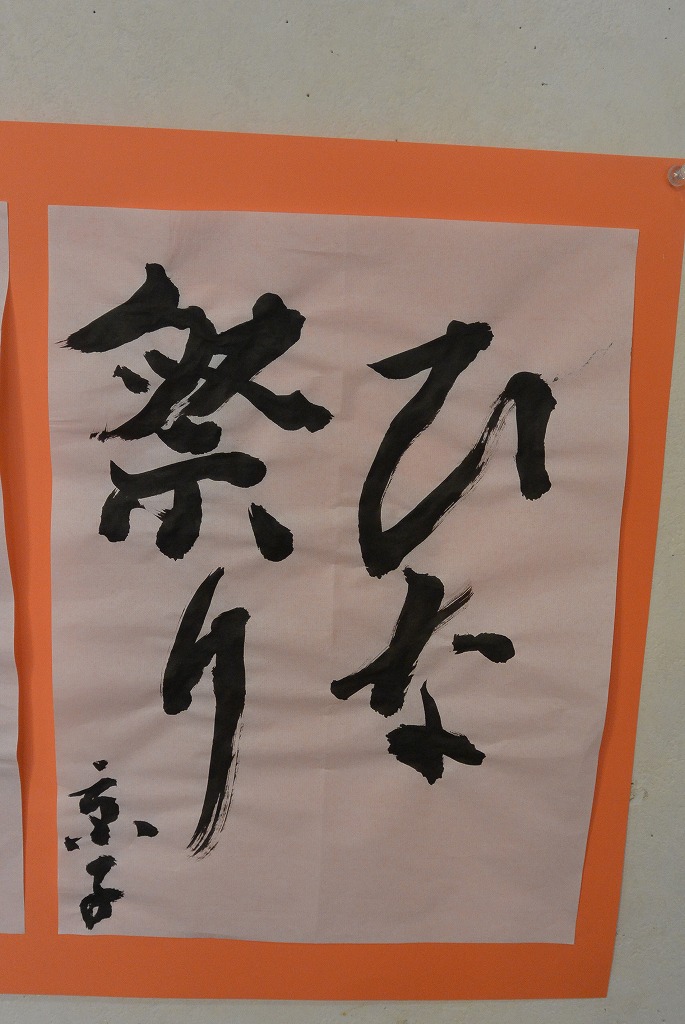 ひな
祭り
京子